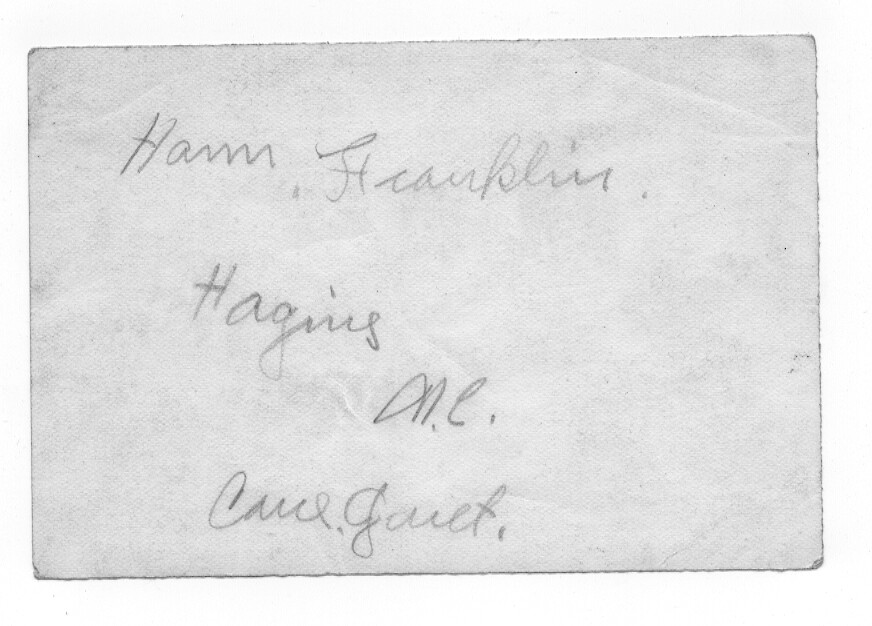 Hann. Franklin.
Hagins
N.C.
Care.